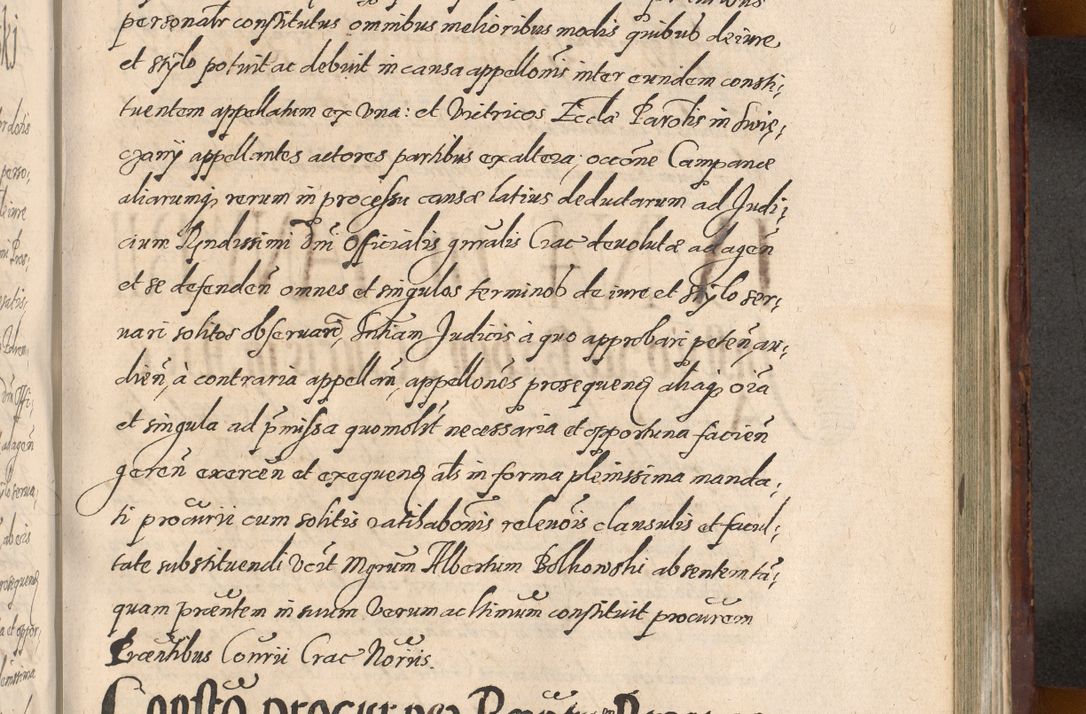 personalr constitutus omnibus melioribus modis quibus de iure
et stylo potuit ac debuit in causa appellonis inter eundem consti,
tuentem appellatum ex una: et Vitricos Eccla Parolis in Swię,
czany appellantes actores partibus ex altera, occone Campanæ
aliarumq rerum in processu causæ latius deductarum ad Judi,
cium Rndissimi Dni Officialis gnralis Crac devolutæ ad agen
et se defenden omnes et singulos terminos de iure et stylo ser,
uari solitos obseruari, Sntiam Judicis à quo approbari peten au,
dien, à contraria appellan, appellones prosequend aliaq oia
et singula ad pmissa quomolit necessaria et opportuna facien
geren exercen et exequend als in forma plenissima manda,
ti procurii cum solitis ratihabonis releuois clausulis et facul,
tate substituendi Vcit Mgrum Albertum Bolhowski absentem ta,
quam præntem in suum verum ac ltimum constituit procurem
Præntibus Conrii Crac Norriis.
Constō procur